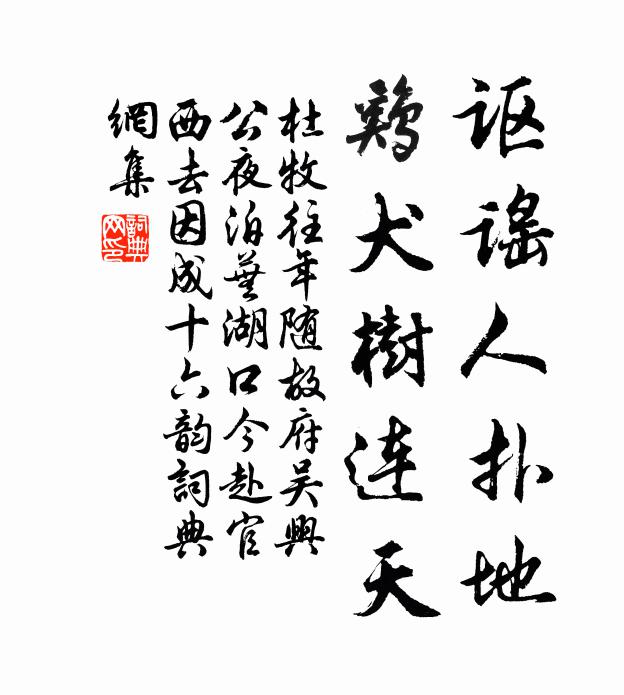 讴謡人扑地
鷄犬樹连天
杜牧往年随故府吴興
公夜泊蕪湖口今赴官
西去因成十六韵詞典
網集
詞典
网印